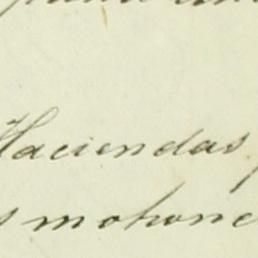 Haciendas
s mohone